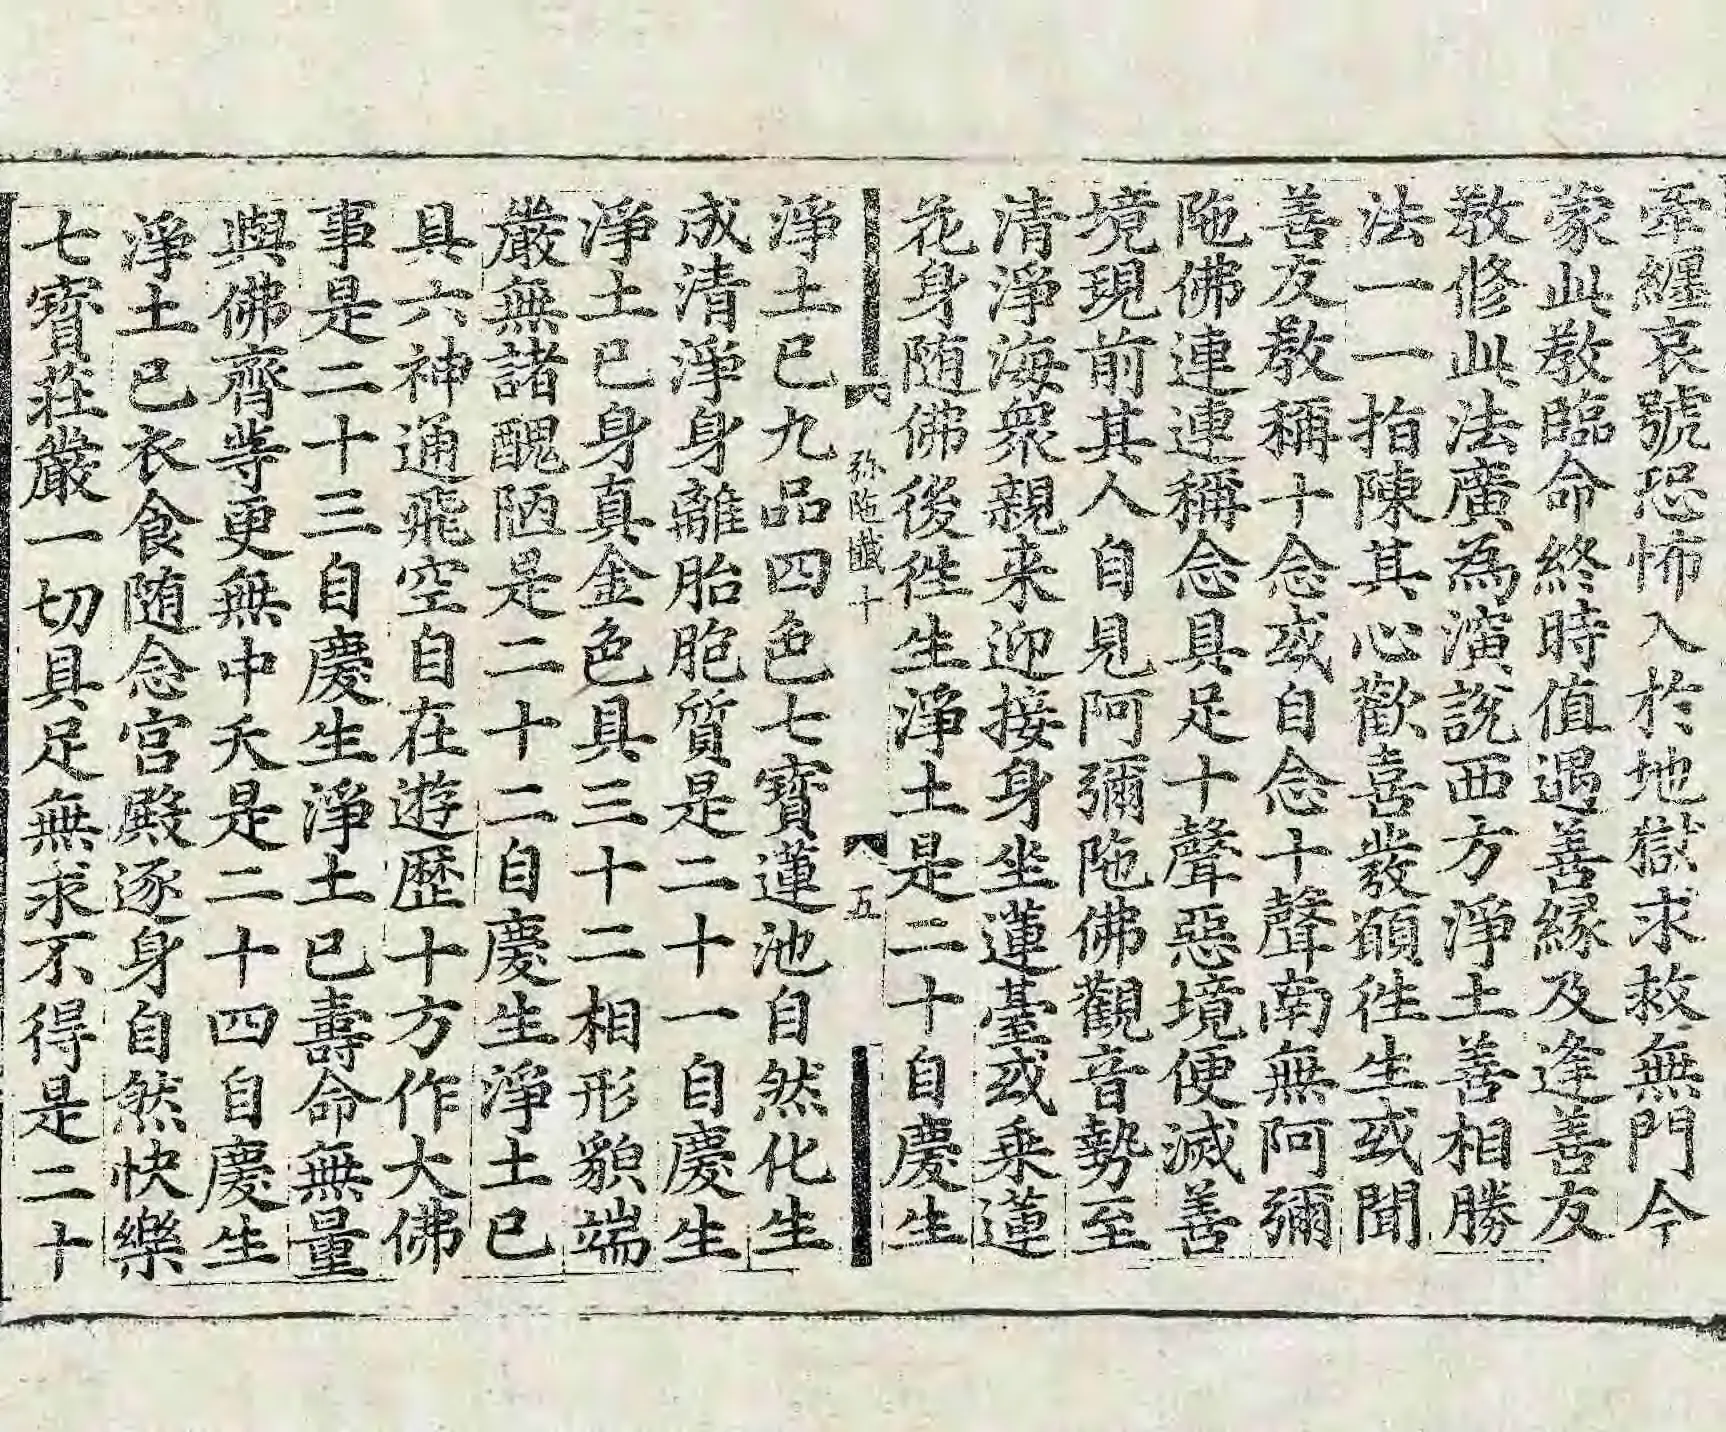 牽纏哀號恐怖入於地獄求救無門今
蒙此教臨命終時值遇善縁及逢善友
教修此法廣為演說西方淨土善相勝
法一一指陳其心歡喜發願徃生或聞
善友教稱十念或自念十聲南無阿彌
陁佛連連稱念具足十聲惡境便滅善
境現前其人自見阿彌陁佛觀音勢至
清淨海衆親来迎接身坐蓮臺或乗蓮
花身随佛後徃生淨土是二十自慶生
弥陁懺十 五
淨土已九品四色七寶蓮池自然化生
成清淨身離胎胞質是二十一自慶生
淨土已身真金色具三十二相形貌端
嚴無諸醜陋是二十二自慶生淨土已
具六神通飛空自在遊歷十方作大佛
事是二十三自慶生淨土已壽命無量
與佛齊等更無中夭是二十四自慶生
淨土已衣食随念宮殿逐身自然快樂
七寶莊嚴一切具足無求不得是二十